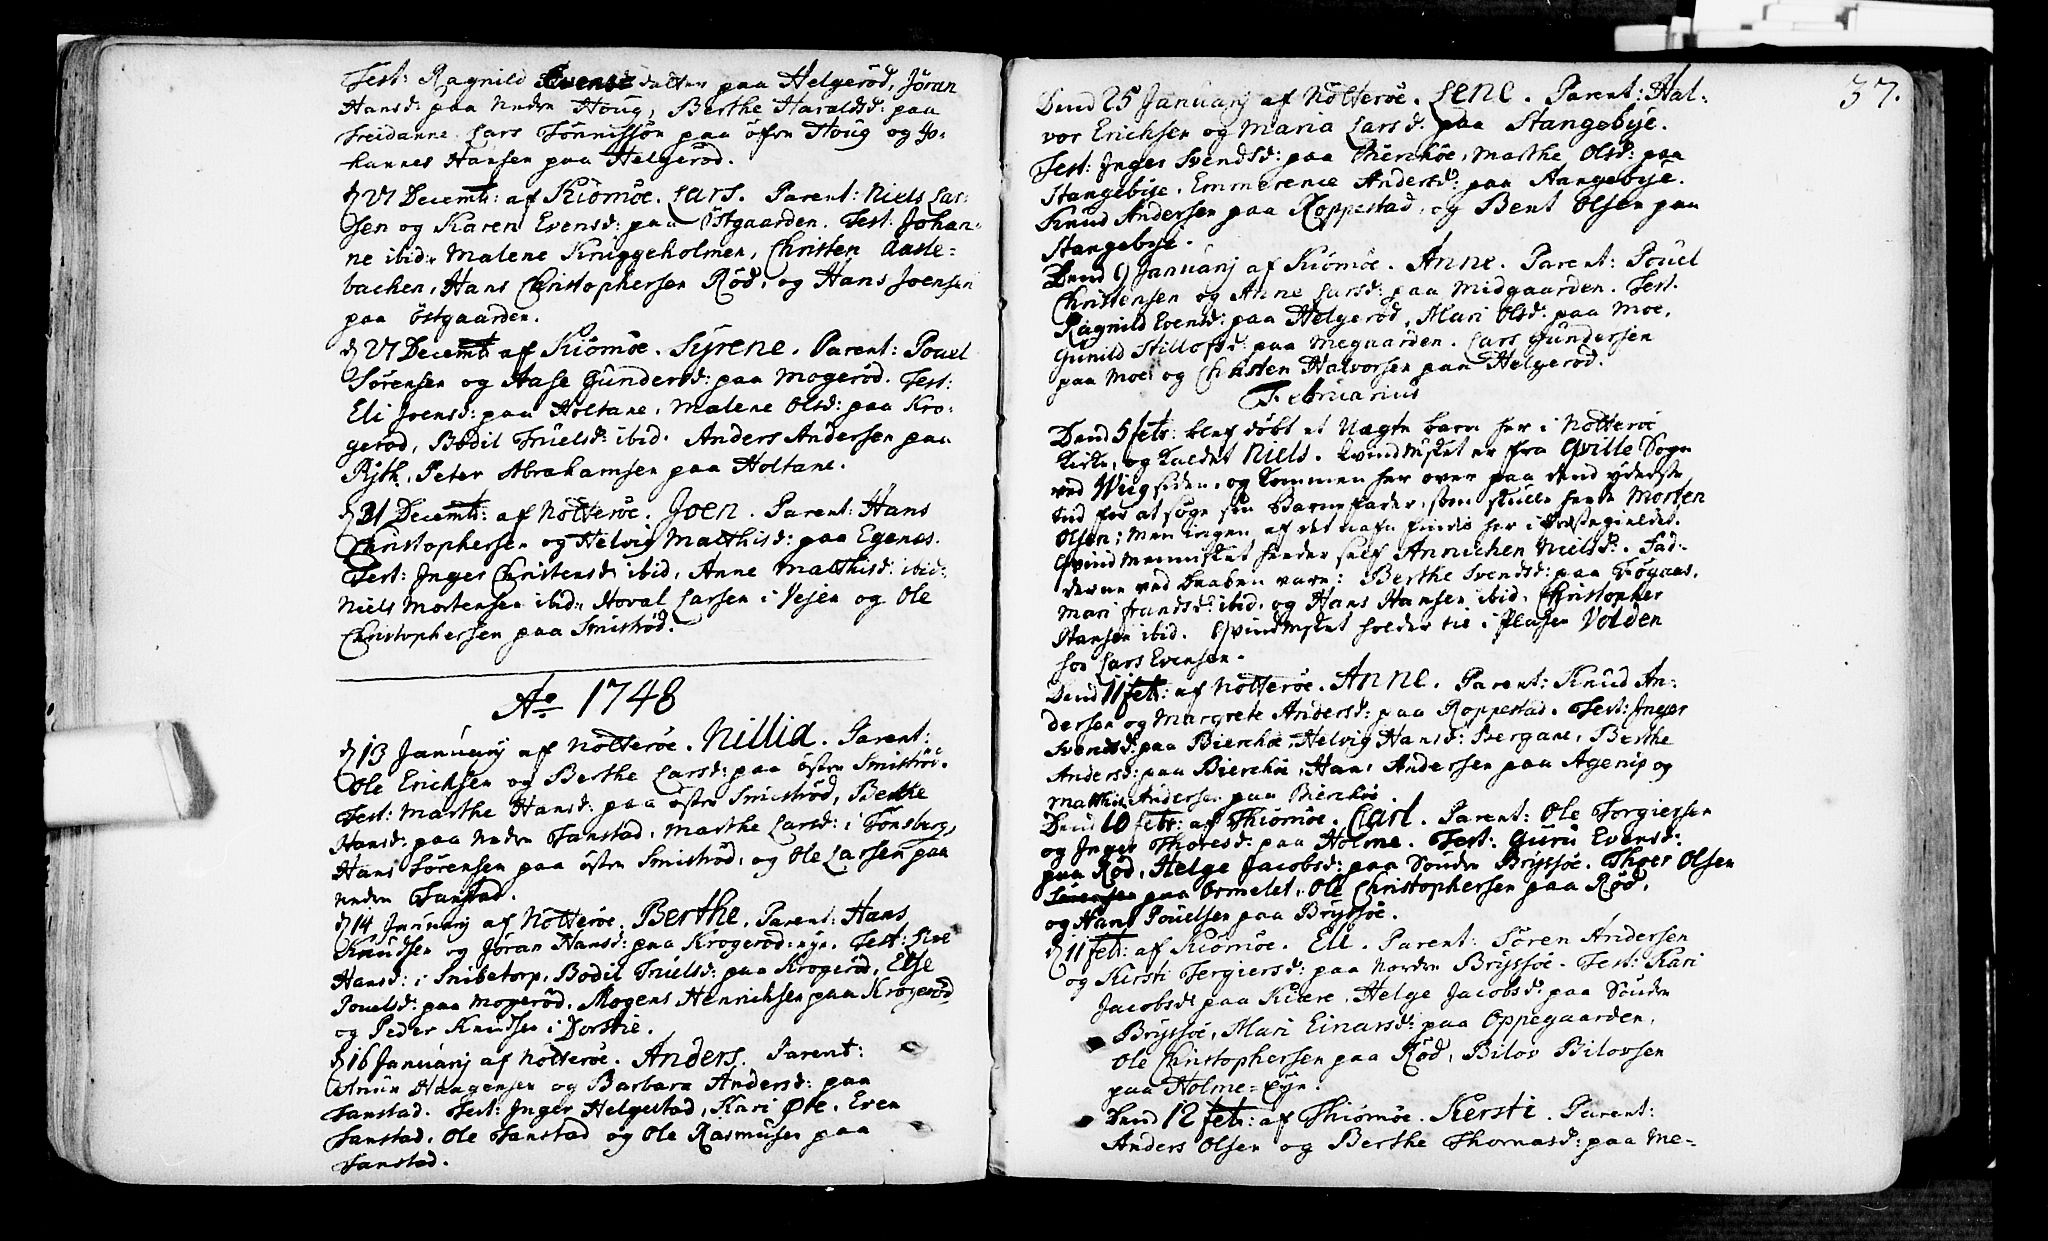 Test: Ragnild Evensdatter paa Helgeröd, Jöran
Hansd: paa Neder Houg, Berthe Haraldsd: paa
Treidanne. Lars Tönnissön paa öfre Houg og Jo-
hannes Hansen paa Helgeröd.
d 27 Decembr: af Kiömöe. Lars. Parent: Niels Lar-
sen og Karen Evensd: paa Östgaarden. Test: Johan-
ne ibid: Malene Kniggeholmen, Christen Aasle-
bachen, Hans Christophersen Röd, og Hans Joensen
paa Östgaarden.
d 27 Decembr af Kiömöe. Syrene. Parent: Pouel
Sörensen og Aase Gundersd: paa Mogeröd. Test:
Eli Joensd: paa Holtane, Malene Olsd: paa Kro-
geröd, Bodil Truelsd: ibid. Anders Andersen paa
Peter Abrahamsen paa Holtane.
d 21 Decembr: af Nötteröe. Joen. Parent: Hans
Christophersen og Helvig Matthisd: paa Egenes.
Test: Inger Christensd: ibid, Anne Matthisd: ibid:
Niels Mortensen ibid: Hoval Larsen i Vejen og Ole
Christophersen paa Smiströd.
Ao 1748
d 13 Januarij af Nötteröe. Nillia. Parent:
Ole Erichsen og Berthe Larsd: paa östre Smiströd.
Test: Marthe Hansd: paa östre Smiströd, Berthe
Hansd: paa Neder Tanstad, Marthe Larsd: i Tönsberg,
Hans Sörensen paa östre Smiströd, og Ole Larsen paa
Neder Tanstad.
d 14 Januarij af Nötteröe. Berthe. Parent: Hans
Knudsen og Jöran Hansd: paa Krogeröd: eje. Test: Live
Hansd: i Snibetorp, Bodil Truelsd: paa Krogeröd, Else
Pouelsd: paa Mogeröd, Mogens Henrichsen paa Krogeröd
og Peder Knudsen i Dorstie.
d 16 Januarij af Nötteröe. Anders. Parent:
Haagensen og Barbara Andersd: paa
Tanstad. Test: Inger Helgestad, Kari Öre, Even
Tanstad, Ole Tanstad og Ole Rasmusen paa
Tanstad.
37.
Dend 25 Januarij af Nötteröe. Lene. Parent: Hal-
vor Erichsen og Maria Larsd: paa Stangebye.
Test: Inger Svendsd: paa Bierchöe, Marthe Olsd: paa
Stangebye, Emmerence Andersd: paa Stangebye.
Knud Andersen paa Roppestad, og Bent Olsen paa
Stangebye.
Dend 9 Januarij af Kiömöe. Anne. Parent: Pouel
Christensen og Anne Larsd: paa Midgaarden. Test.
Ragnild Evensd: paa Helgeröd, Mari Olsd: paa Moe,
Gunild Stillofsd: paa Megaarden. Lars Gundersen
paa Moe, og Christen Halvorsen paa Helgeröd.
Februarius
Dend 5 febr: blef döbt et Uægte barn her i Nötteröe
Kirke, og kaldet Niels. Qvindmsket er fra Qville Sogn
ved Wiigsiden, og kommen her over paa dend yderste
tid for at söge sin Barnefader, som skulle hede Morten
Olsen; men ingen af det nafn findes her i Præstegieldet.
Qvindmennisket heeder self Annichen Nielsd:. Fad-
derne ved daaben vare: Berthe Svendsd: paa
Mari ibid, og Hans Hansen ibid, Christopher
Hansen ibid. Qvindmsket holder til i Pladsen Volden
hos Lars Evensen.
Dend 11 febr: af Nötteröe. Anne. Parent: Knud An-
dersen og Margrete Andersd: paa Roppestad. Test: Inger
Svendsd: paa Bierchöe, Helvig Hansd: Bergane, Berthe
Andersd: paa Bierchöe, Hans Andersen paa Agerup og
Matthis Andersen paa Bierchöe.
Dend 10 febr: af Thiömöe. Carl. Parent: Ole Torgiersen
og Inger Thoresd: paa Holme. Test: Guru Evensd:
paa Röd, Helge Jacobsd: paa Söndre Brysöe. Thoer Olsen
paa Ormelet, Ole Christophersen paa Röd,
og Hans Pouelsen paa Brysöe.
d 11 febr: af Kiömöe. Eli. Parent: Sören Andersen
og Kersti Tergiersd: paa Norden Brysöe. Test: Kari
Jacobsd: paa Kiære, Helge Jacobsd: paa Söndre
Brysöe, Mari Einarsd: paa Oppegaarden,
Ole Christophersen paa Röd, Bilov Bilovsen
paa Holme-eye.
Dend 12 febr: af Thiömöe. Kersti. Parent:
Anders Olsen og Berthe Thomasd: paa Me-